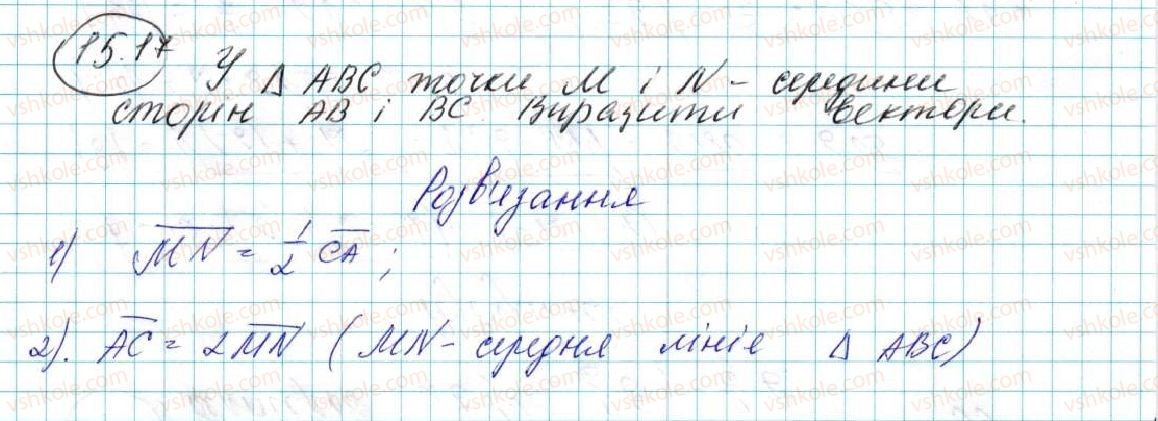 15.17
У Δ ABC точки M і N - середини
сторін AB і BC. Виразити вектори.
Розв'язання
1) \overline{MN} = \frac{1}{2} \overline{CA};
2). \overline{AC} = 2\overline{MN} (MN - середня лінія Δ ABC)